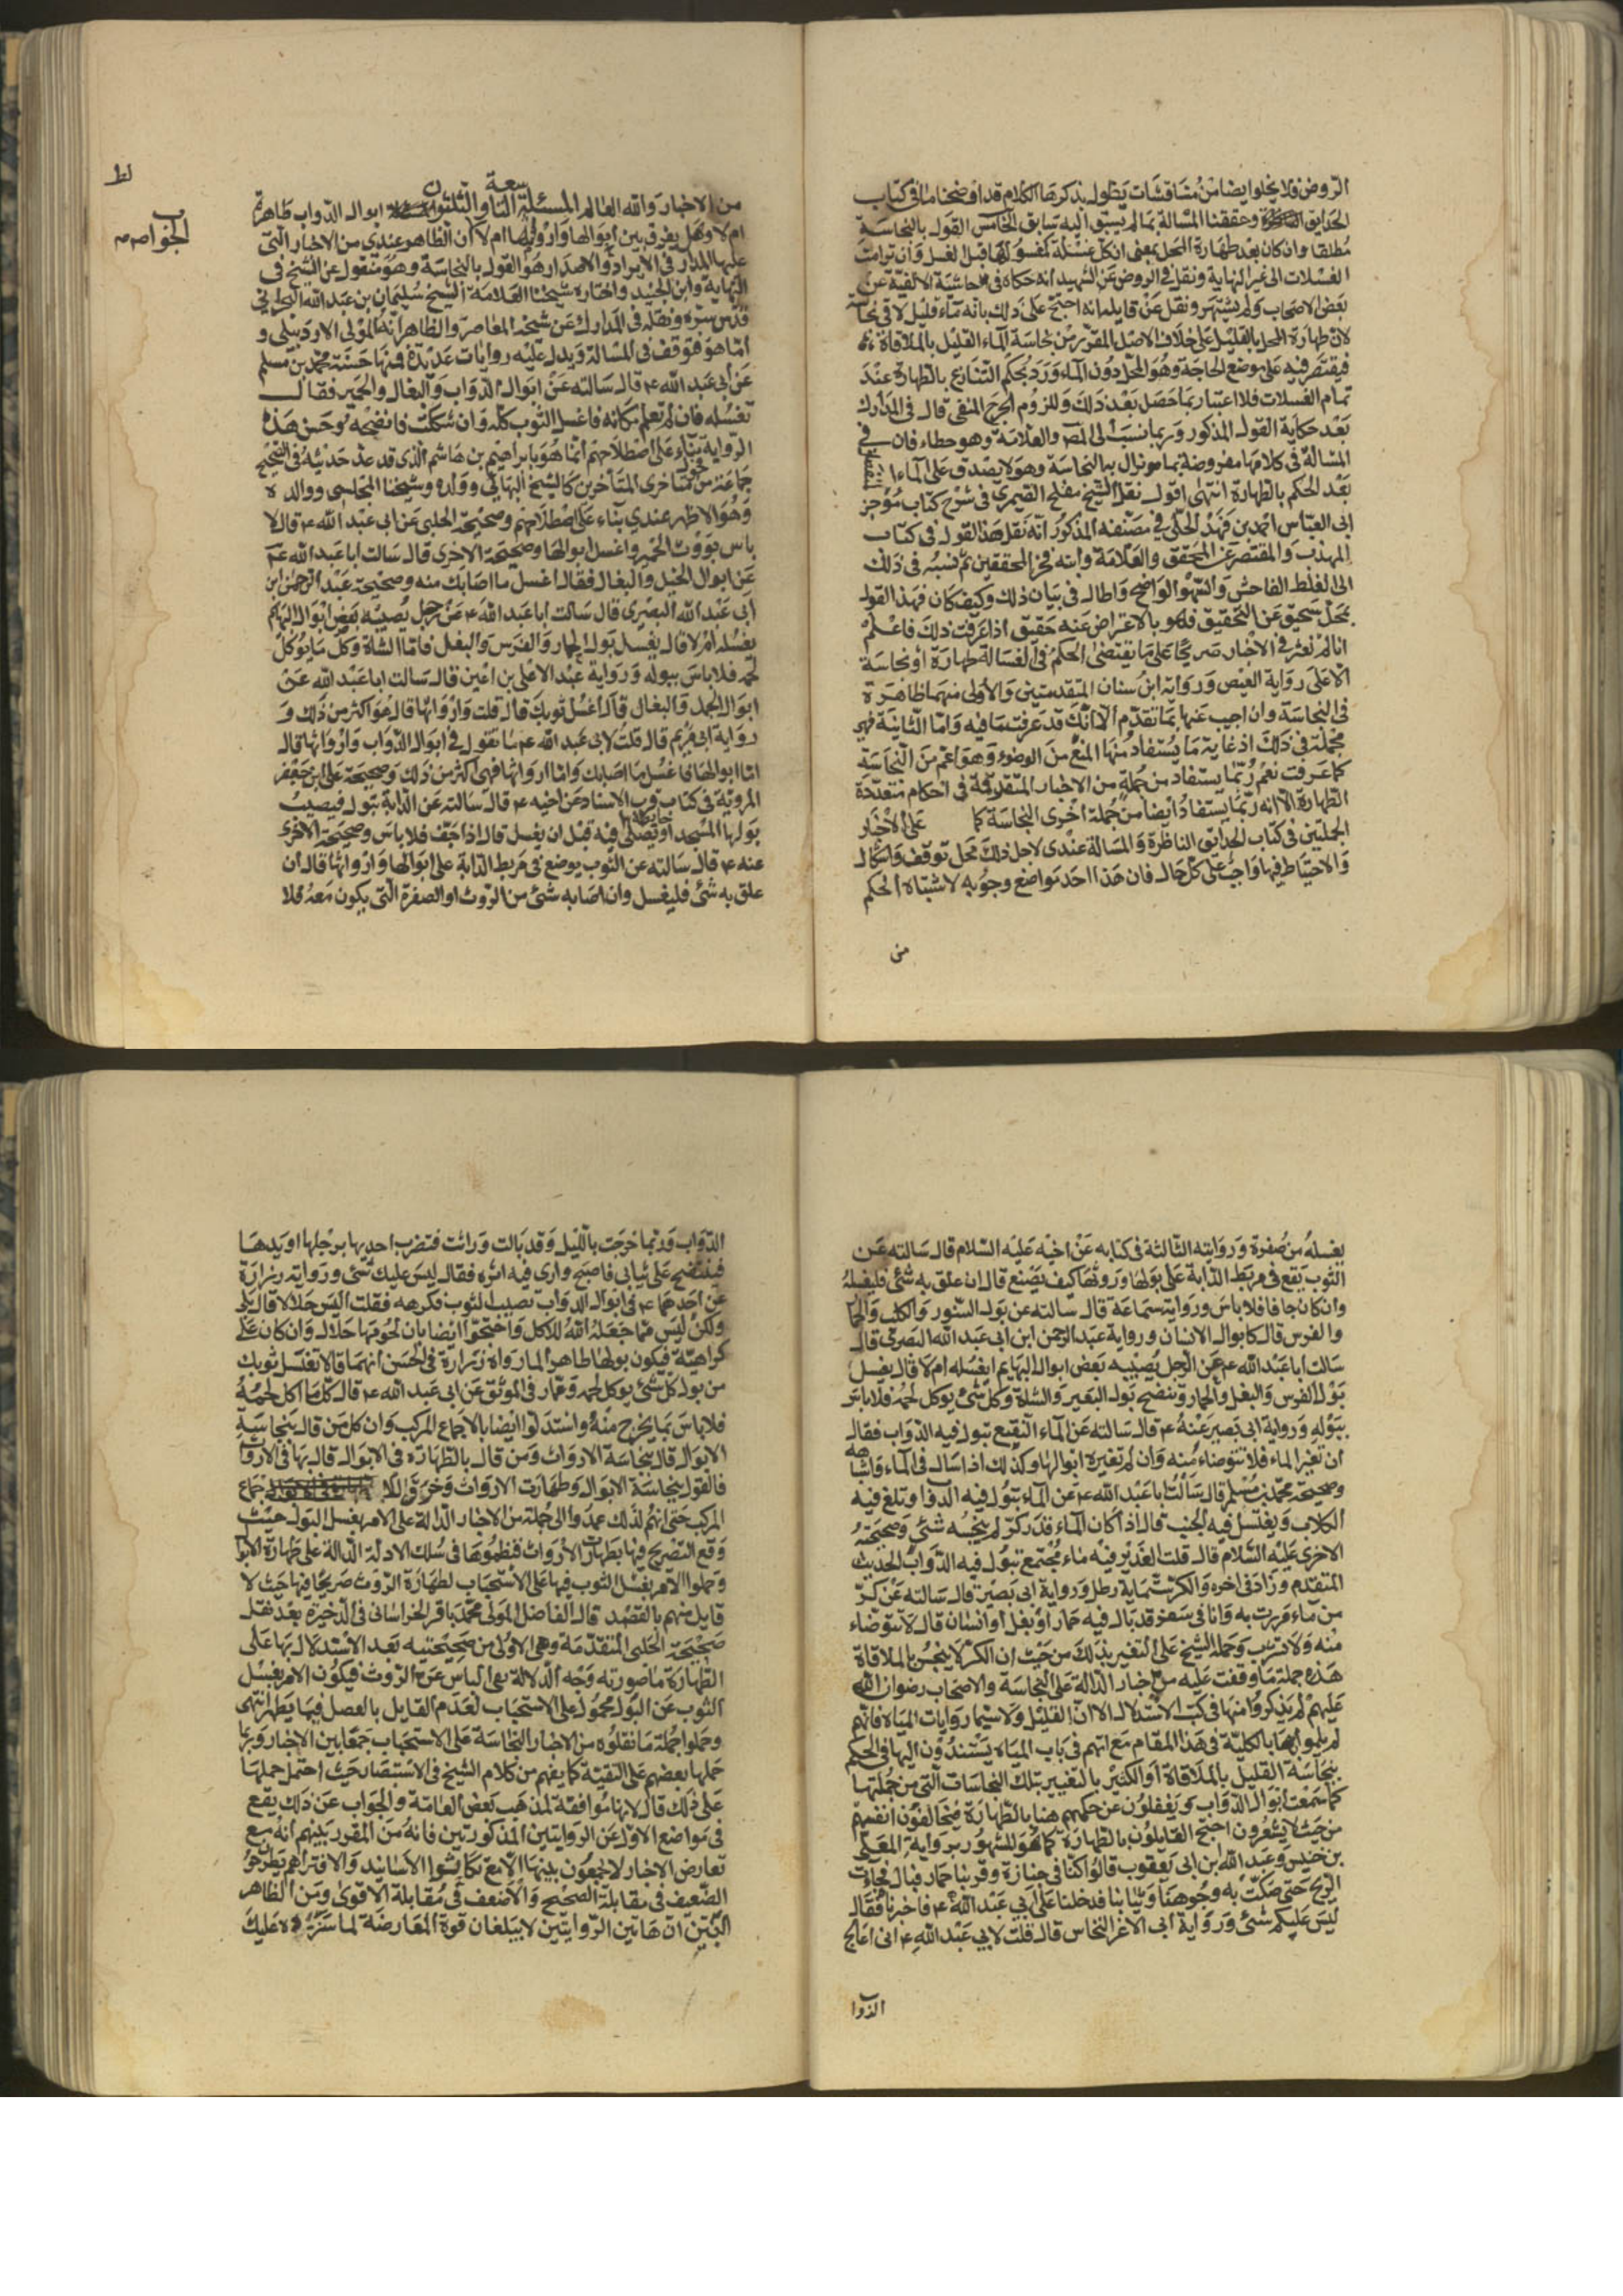 الروض فلا يخلوا ايضا من مناقشات يطول بذكرها الكلام قد اوضحناها في كتاب
الحدايق وحققنا المسالة بما لم يسبق اليه سابق الخامس القول بالنجاسة
مطلقا وان كان بعد طهارة المحل بمعنى ان كل غسالة كمغسولها قبل الغسل وان ترامت
الغسلات الى غير النهاية ونقل في الروض عن الشهيد انه حكاه في حاشية الالفية عن
بعض الاصحاب ولم يشتهر ونقل عن قايله انه احتج على ذلك بانه ماء قليل لاقى نجاسة
لان طهارة المحل بالقليل على خلاف الاصل المقرر من نجاسة الماء القليل بالملاقاة
فيقتصر فيه على موضع الحاجة وهو المحل دون الماء ورد بحكم الشارع بالطهارة عند
تمام الغسلات فلا اعتبار بما حصل بعد ذلك وللزوم الحرج المنفى قال في المدارك
بعد حكاية القول المذكور وربما نسب الى المصـ والعلامة وهو خطاء فان
المسالة في كلامها مفروضة بما يزال به النجاسة وهو لا يصدق على الماء المنفصل
بعد الحكم بالطهارة انتهى اقول نقل الشيخ مفلح الصيمري في شرح كتاب موجز
ابي العباس احمد بن فهد الحلي في مصنفه المذكور انه نقل هذا القول في كتاب
المهذب والمقتصر عن المحقق والعلامة وابنه فخر المحققين ثم نسبه في ذلك
الى الغلط الفاحش والسهو الواضح واطال في بيان ذلك وكيف كان فهذا القول
بمحل سحيق عن التحقيق فهو بالاعراض عنه حقيق اذا عرفت ذلك فاعلم
انا لم نعثر في الاخبار صريحا على ما يقتضي الحكم في الغسالة طهارة او نجاسة
الا على رواية العيص ورواية ابن سنان المتقدمتين والاولى منهما ظاهرة
في النجاسة وان اجيب عنها بما تقدم الا انك قد عرفت ما فيه واما الثانية فهي
مجملة في ذلك اذ غاية ما يستفاد منها المنع من الوضوء وهو اعم من النجاسة
كما عرفت نعم ربما يستفاد من جملة من الاخبار المتفرقة في احكام متعددة
الطهارة الا انه ربما يستفاد ايضا من جملة اخرى النجاسة كما على الاخبار
الجملتين في كتاب الحدايق الناظرة والمسالة عندي لاجل ذلك محل توقف واشكال
والاحتياط فيها واجب على كل حال فان هذا احد مواضع وجوبه لاشتباه الحكم
من
لط
من الاخبار والله العالم المسئلة التاسعة والثلثون ابوال الدواب طاهرة
ام لا وهل يفرق بين ابوالها وارواثها ام لا ان الظاهر عندي من الاخبار التي
الجواب
عليها المدار في الايراد والاصدار هو القول بالنجاسة وهو منقول عن الشيخ في
النهاية وابن الجنيد واختاره شيخنا العلامة الشيخ سليمان بن عبد الله البحراني
قدس سره ونقله في المدارك عن شيخه المعاصر والظاهر انه المولى الاردبيلي و
اما هو فتوقف في المسالة ويدل عليه روايات عديدة فمنها حسنة محمد بن مسلم
عن ابي عبد الله ع قال سالته عن ابوال الدواب والبغال والحمير فقال
تغسله فان لم تعلم مكانه فاغسل الثوب كله وان شككت فانضحه وحسن هذه
الرواية بناء على اصطلاحهم انما هو بابراهيم بن هاشم الذي قد عد حديثه في الصحيح
جماعة من متاخرى المتاخرين كالشيخ البهائي ووالده وشيخنا المجلسي ووالده
وهو الاظهر عندي بناء على اصطلاحهم وصحيحة الحلبي عن ابي عبد الله ع قال لا
باس بروث الحمير واغسل ابوالها وصحيحته الاخرى قال سالت ابا عبد الله ع
عن ابوال الخيل والبغال فقال اغسل ما اصابك منه وصحيحة عبد الرحمن ابن
ابي عبد الله البصري قال سالت ابا عبد الله ع عن رجل يصيبه بعض ابوال البهايم
يغسله ام لا قال يغسل بول الحمار والفرس والبغل فاما الشاة وكل ما يؤكل
لحمه فلا باس ببوله ورواية عبد الاعلى بن اعين قال سالت ابا عبد الله عن
ابوال الحمير والبغال قال اغسل ثوبك قال قلت وارواثها قال هو اكثر من ذلك و
رواية ابي مريم قال قلت لابي عبد الله ع ما تقول في ابوال الدواب وارواثها قال
اما ابوالها فاغسل ما اصابك واما ارواثها فهي اكثر من ذلك وصحيحة علي ابن جعفر
المروية في كتاب قرب الاسناد عن اخيه ع قال سالته عن الدابة تبول فيصيب
بولها المسجد او حايطه ايصلي فيه قبل ان يغسل قال اذا جف فلا باس وصحيحته الاخرى
عنه ع قال سالته عن الثوب يوضع في مربط الدابة على ابوالها وارواثها قال ان
علق به شئ فليغسل وان اصابه شئ من الروث او الصفرة التي يكون معه فلا
يغسله من صفرة وروايته الثالثة في كتابه عن اخيه عليه السلام قال سالته عن
الثوب يقع في مربط الدابة على بولها وروثها كيف يصنع قال ان علق به شئ فليغسله
وان كان جافا فلا باس ورواية سماعة قال سالته عن بول السنور والكلب والحمار
والفرس قال كابوال الانسان ورواية عبد الرحمن ابن ابي عبد الله البصري قال
سالت ابا عبد الله ع عن الرجل يصيبه بعض ابوال البهايم ايغسله ام لا قال يغسل
بول الفرس والبغل والحمار وينضح بول البعير والشاة وكل شئ يوكل لحمه فلا باس
ببوله ورواية ابي بصير عنه ع قال سالته عن الماء النقيع تبول فيه الدواب فقال
ان تغير الماء فلا تتوضاء منه وان لم تغيره ابوالها وكذلك اذا سال في الماء واشباهه
وصحيحة محمد بن مسلم قال سالت ابا عبد الله ع عن الماء تبول فيه الدواب وتلغ فيه
الكلاب ويغتسل فيه الجنب قال اذا كان الماء قدر كر لم ينجسه شئ وصحيحته
الاخرى عليه السلام قال قلت الغدير فيه ماء مجتمع تبول فيه الدواب الحديث
المتقدم وزاد في اخره والكر ستماية رطل ورواية ابي بصير قال سالته عن كر
من ماء مررت به وانا في سفر قد بال فيه حمار او بغل او انسان قال لا تتوضاء
منه ولا تشرب وحمله الشيخ على التغير بذلك من حيث ان الكر لا ينجس بالملاقاة
هذه جملة ما وقفت عليه من الاخبار الدالة على النجاسة والاصحاب رضوان الله
عليهم لم يذكروا منها في كتب الاستدلال الا ان القليل ولا سيما روايات المياه فانهم
لم يلموا بها بالكلية في هذا المقام مع انهم في باب المياه يستندون اليها في الحكم
بنجاسة القليل بالملاقاة او الكثير بالتغيير بتلك النجاسات التي من جملتها
كما سمعت ابوال الدواب ويغفلون عن حكمهم هنا بالطهارة فيخالفون انفسهم
من حيث لا يشعرون احتج القايلون بالطهارة كما هو المشهور برواية المعلى
بن خنيس وعبد الله بن ابي يعقوب قالوا كنا في جنازة وقربنا حمار فبال فجاءت
الريح حتى صكت به وجوهنا وثيابنا فدخلنا على ابي عبد الله ع فاخبرناه فقال
ليس عليكم شئ ورواية ابي الاغر النخاس قال قلت لابي عبد الله ع اني اعالج
الدواب
الدواب وربما خرجت بالليل وقد بالت وراثت فتضرب احديها برجلها او يدها
فينتضح على ثيابي فاصبح وارى فيه اثره فقال ليس عليك شئ ورواية زرارة
عن احدهما ع في ابوال الدواب تصيب الثوب فكرهه فقلت اليس حلالا قال بلى
ولكن ليس مما جعله الله للاكل واحتجوا ايضا بان لحومها حلال وان كان على
كراهية فيكون بولها طاهرا لما رواه زرارة في الحسن انهما قالا لا تغسل ثوبك
من بول كل شئ يوكل لحمه وعمار في الموثق عن ابي عبد الله ع قال كل ما اكل لحمه
فلا باس بما يخرج منه واستدلوا ايضا بالاجماع المركب وان كل من قال بنجاسة
الابوال قال بنجاسة الارواث ومن قال بالطهارة في الابوال قال بها في الارواث
فالقول بنجاسة الابوال وطهارت الارواث وخرق للاجماع
المركب حتى انهم لذلك عمدوا الى جملة من الاخبار الدالة على الامر بغسل البول حيث
وقع التصريح فيها بطهارت الارواث فنظموها في سلك الادلة الدالة على طهارة الابوال
وحملوا الامر بغسل الثوب فيها على الاستحباب لطهارة الروث صريحا فيها حيث لا
قايل منهم بالفصد قال الفاضل المولى محمد باقر الخراساني في الذخيرة بعد نقل
صحيحة الحلبي المتقدمة وهي الاولى من صحيحتيه بعد الاستدلال بها على
الطهارة ما صورته وجه الدلالة نفي الباس عن الروث فيكون الامر بغسل
الثوب عن البول محمول على الاستحباب لعدم القايل بالفصل فيما يظهر انتهى
وحملوا جملة ما نقلوه من الاخبار النجاسة على الاستحباب جمعا بين الاخبار وربما
حملها بعضهم على التقية كما يفهم من كلام الشيخ في الاستبصار حيث احتمل حملها
على ذلك قال لانها موافقة لمذهب بعض العامة والجواب عن ذلك يقع
في مواضع الاول عن الروايتين المذكورتين فانه من المقرر بينهم انه مع
تعارض الاخبار لا يجمعون بينها الا مع تكافئوا الاسانيد والا فتراهم يطرحوا
الضعيف في مقابلة الصحيح والاضعف في مقابلة الاقوى ومن الظاهر
البين ان هاتين الروايتين لا يبلغان قوة المعارضة لما سردناه عليك